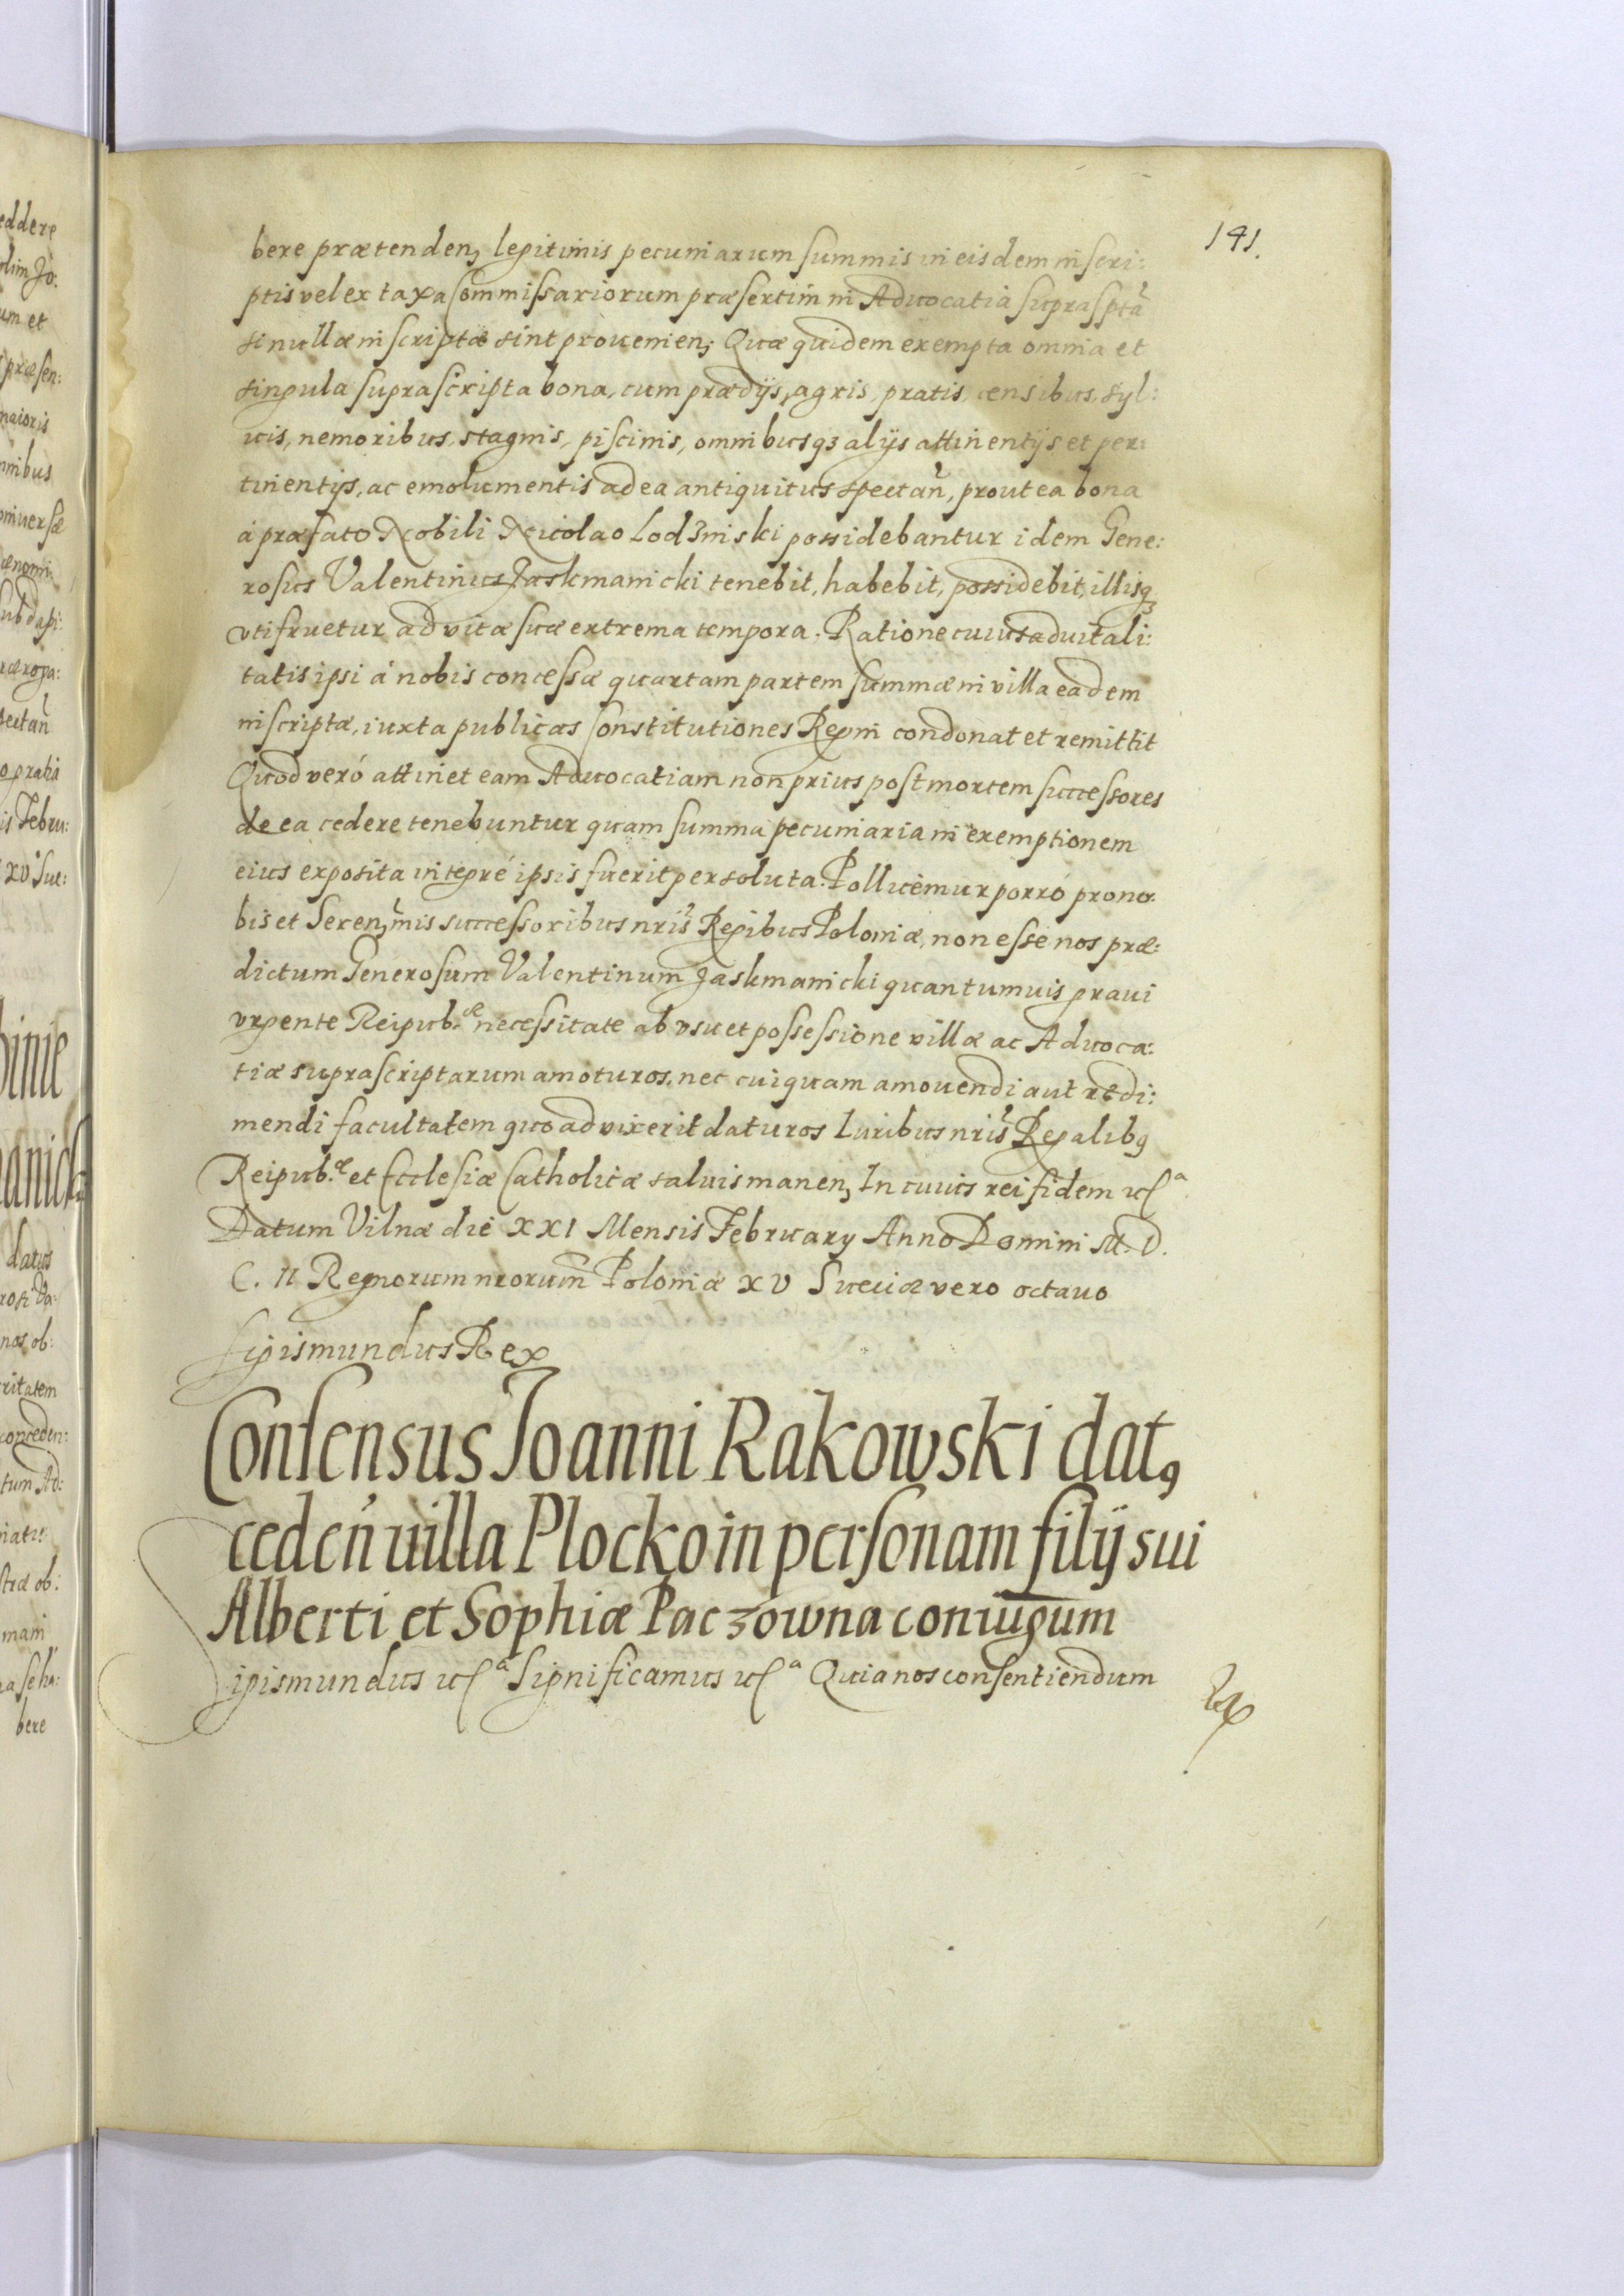 141.
bere prætenden, legitimis pecuniarum summis in eisdem inscri:
ptis vel ex taxa Commissariorum præsertim in Aduocatia suprasptã
si nullæ inscriptæ sint prouenien; Quæ quidem exempta omnia et
singula suprascripta bona, cum prædijs, agris, pratis, censibus, syl:
uis, nemoribus, stagnis, piscinis, omnibusqȝ alijs attinentijs et per:
tinentijs, ac emolumentis ad ea antiquitus spectañ, prout ea bona
à præfato Nobili Nicolao Lodzinski possidebantur idem Gene:
rosus Valentinus Jaskmanicki tenebit, habebit, possidebit, illisqȝ
vti fruetur ad vitæ suæ extrema tempora. Ratione cuius aduitali:
tatis ipsi á nobis concessæ quartam partem summæ in villa eadem
inscriptæ, iuxta publicas Constitutiones Regni condonat et remittit
Quod veró attinet eam Aduocatiam non prius post mortem successores
de ea cedere tenebuntur quam summa pecuniaria in exemptionem
eius exposita integré ipsis fuerit persoluta. Pollicemur porró pro no:
bis et Seren,mis successoribus nris̃ Regibus Poloniæ, non esse nos præ:
dictum Generosum Valentinum Jaskmanicki quantumuis graui
vrgente Reipub.æ necessitate ab vsu et possessione villæ ac Aduoca:
tiæ suprascriptarum amoturos, nec cuiquam amouendi aut redi:
mendi facultatem quoad vixerit daturos Iuribus nris̃ Regalibꝯ
Reipub.æ et Ecclesiæ Catholicæ saluis manen, In cuius rei fidem ec.a
Datum Vilnæ die XXI Mensis February Anno Domini M. D.
C. II Regnorum nrorum̃ Poloniæ XV Sueciæ vero octauo
Sigismundus Rex
Consensus Joanni Rakowski datꝯ
cedeń uilla Plocko in personam filij sui
Alberti et Sophiæ Paczowna coniugum
Sigismundus ec.a Significamus ec.a Quia nos consentiendum
eddere
olim Jo:
um et
præsen:
maioris
mnibus
vniuersæ
gratia
is Febru:
XV Sue:
datus
nos ob:
conceden:
tum Ad:
mam
a se ha:
bere